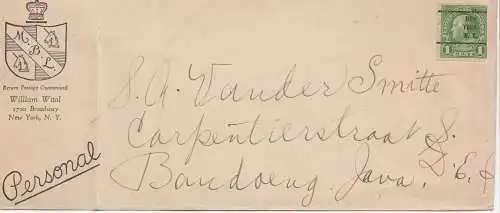 M.B.L.
Return Postage Guaranteed
William Wital
1720 Broadway
New York, N. Y.
Personal
NEW
YORK
N. Y.
1 CENT 1
S. A. Vander Smitte
Carpentierstraat 8.
Bandoeng, Java, D. E. I